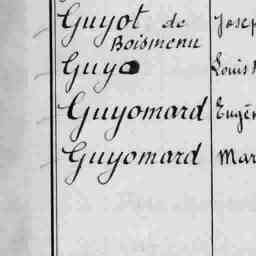 Guyot de
Boismenu
Guyo
Louis
Guyomard Eugè
Guyomard Mar